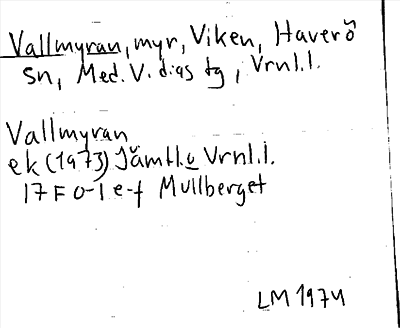 Vallmyran, myr, Viken, Haverö
sn, Med. V. digs tg, Vrnl.l.
Vallmyran
ek (1973) Jämtl. o Vrnl.l.
17 F 0-1 e-f Mullberget
LM 1974